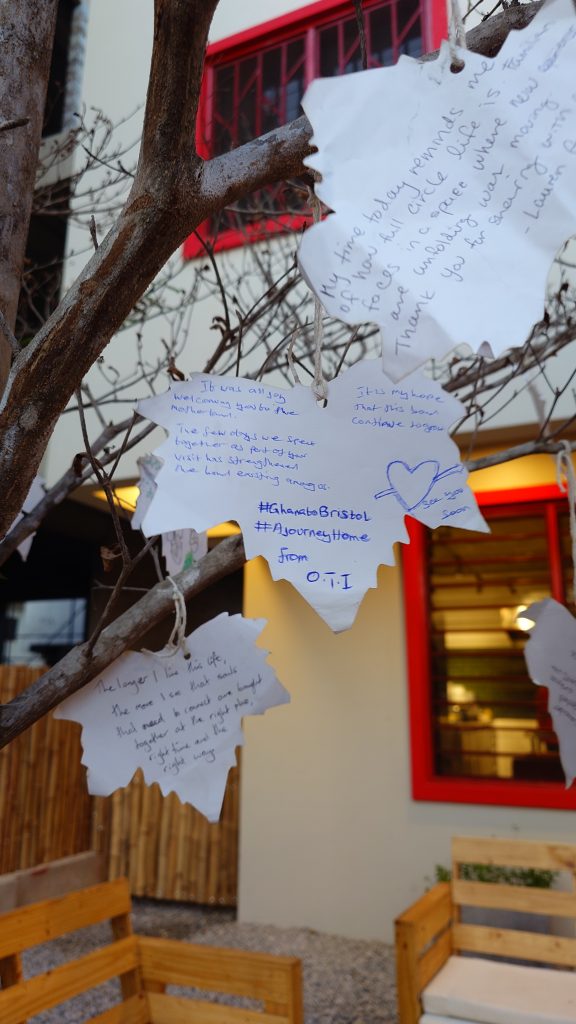 My time today reminds me
of how full circle life is. Familiar
faces in a space where new
are unfolding was moving
Thank you for sharing with
- Lauren
It was all joy
welcoming you to the
Motherland.
The few days we spent
together as part of your
visit has strengthened
the bowl existing amongos.
It is my hope
That this bowl
continue to grow
See you
soon
#GhanatoBristol
#AJourneyHome
from
O.T.I
The longer I live this life,
the more I see that souls
that need to connect are brought
together at the right place,
right time and the
right way.